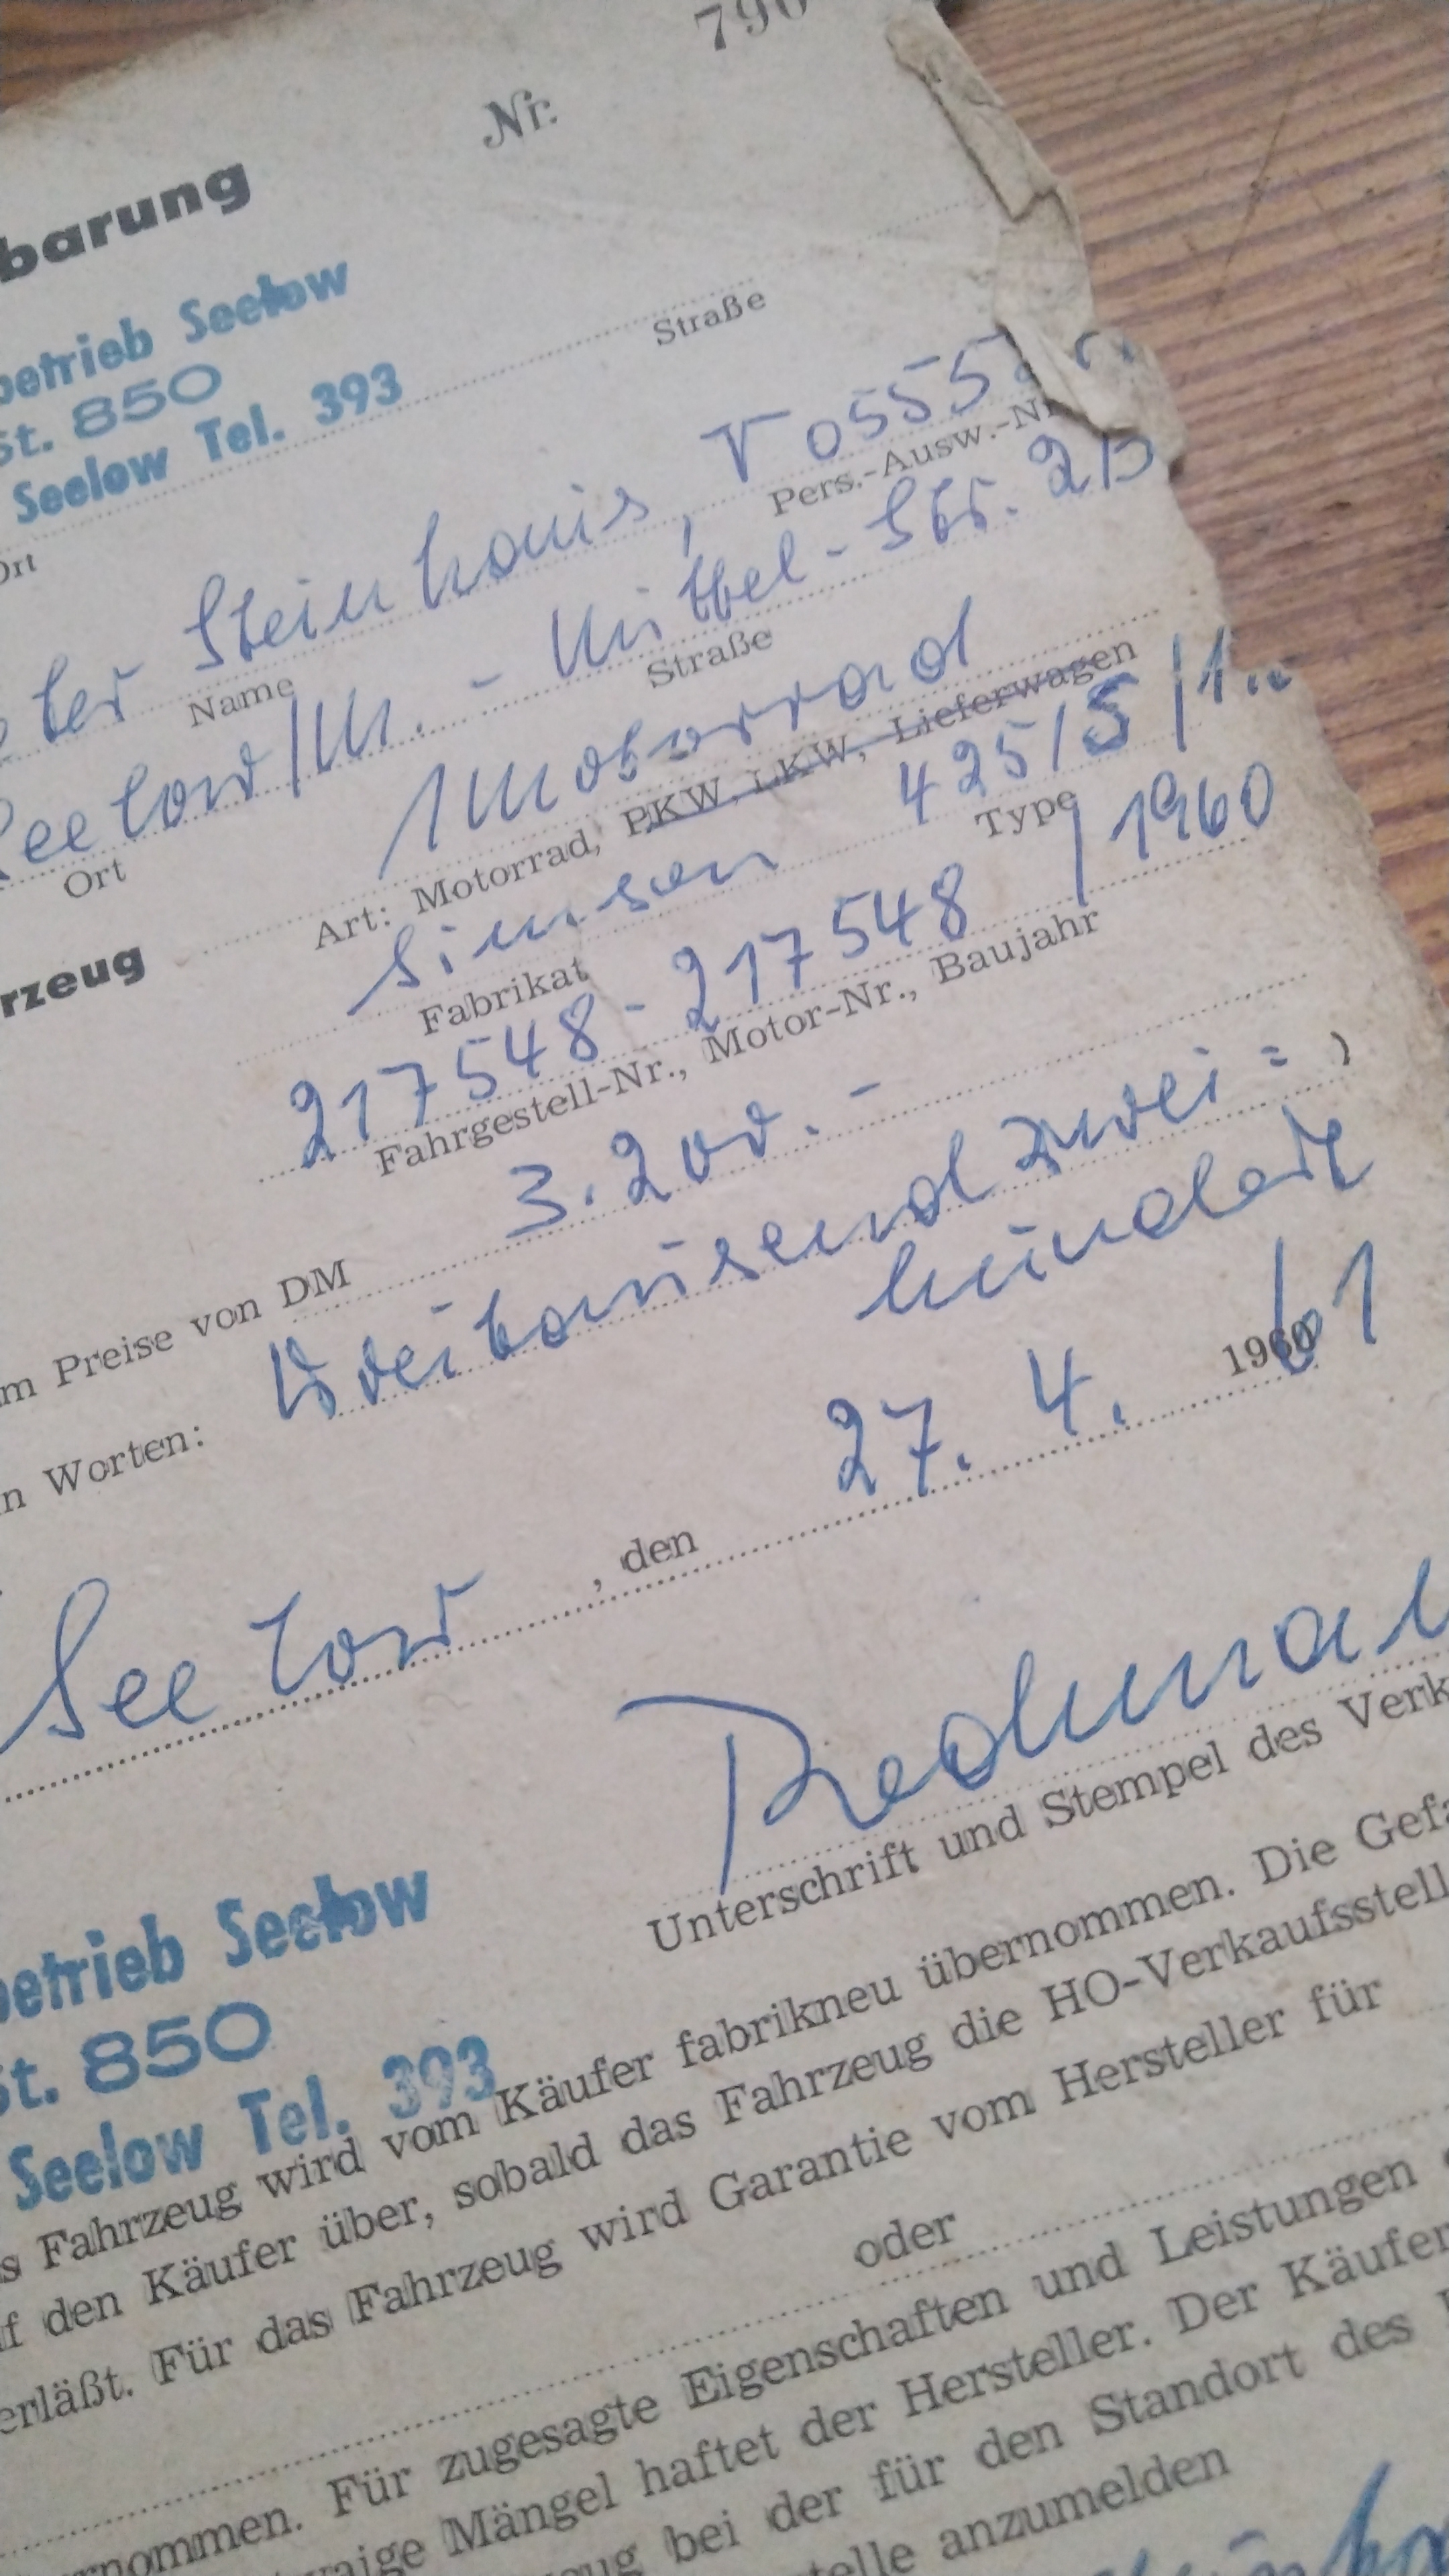 790
Nr.
barung
betrieb Seelow
St. 850
Straße
Seelow Tel. 393
Ort
ter Steinhauis, V 0555
Name
Pers.-Ausw.-Nr
Seelow/M. - Mittel-Str. 2B
Ort
Straße
1 Motorrad
rzeug
Art: Motorrad, PKW, LKW, Lieferwagen
Simson 425/S/1
Fabrikat
Type
217548 - 217548 / 1960
Fahrgestell-Nr., Motor-Nr., Baujahr
m Preise von DM 3.200.-
n Worten: Dreitausend zwei=
hundert
Seelow, den 27. 4. 1960 61
Unterschrift und Stempel des Verk
betrieb Seelow
St. 850
Seelow Tel. 393
s Fahrzeug wird vom Käufer fabrikneu übernommen. Die Gefa
f den Käufer über, sobald das Fahrzeug die HO-Verkaufsstell
erläßt. Für das Fahrzeug wird Garantie vom Hersteller für
oder
rnommen. Für zugesagte Eigenschaften und Leistungen
waige Mängel haftet der Hersteller. Der Käufer
zeug bei der für den Standort des
telle anzumelden